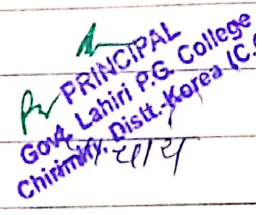 PRINCIPAL
Govt. Lahiri P.G. College
Chirimiri, Distt.-Korea (C.G